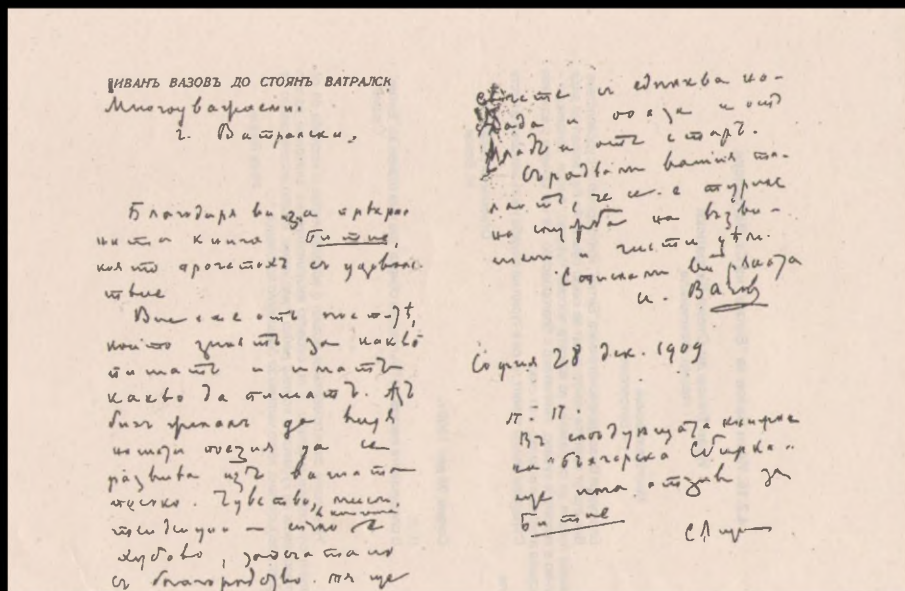 ИВАНЪ ВАЗОВЪ ДО СТОЯНЪ ВАТРАЛСК
Многоуважаеми
г. Ватралски,
Благодаря ви за прѣкрас
ната книга Битие,
която прочетохъ съ удовол-
ствие
Вие сте отъ поетитѣ,
които знаятъ за какво
пишатъ и иматъ
какво да пишатъ. Азъ
бихъ желалъ да видя
нашата поезия да се
развива изъ вашата
посока. Чувство, мисъл
тенденция — сичко е
хубаво, запечатано
съ благородство. Тя ще
чете съ еднаква на-
слада и полза и отъ
младъ и отъ старъ.
Сърадвам вашия та-
лантъ, че се е турилъ
на служба на възви-
шени и чисти цѣли.
Стискамъ ви рѫката
И. Вазовъ
София 28 дек. 1909
П. П.
Въ слѣдующата книжка
на "Българска Сбирка"
ще има отзивъ за
Битие